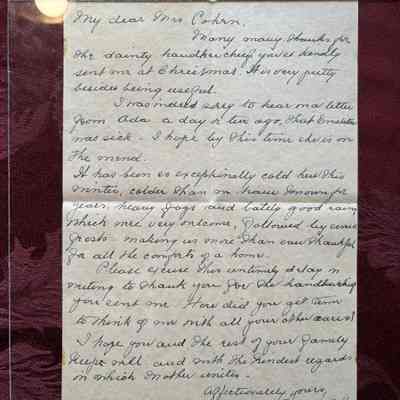 My dear Mrs. Cohen.
Many many thanks for
the dainty handkerchief you so kindly
sent me at Christmas. It is very pretty
besides being useful.
I was indeed sorry to hear in a letter
from Ada a day or two ago, that
was sick - I hope by this time she is on
the mend.
It has been so exceptionally cold here this
winter, colder than we have known for
years, heavy fogs and lately good rains,
which were very welcome, followed by severe
frosts - making us more than ever thankful
for all the comforts of a home.
Please excuse this untimely delay in
writing to thank you for the handkerchief
you sent me. How did you get time
to think of me with all your other cares?
I hope you and the rest of your family
keep well and with the kindest regards
in which Mother unites.
Affectionately yours,